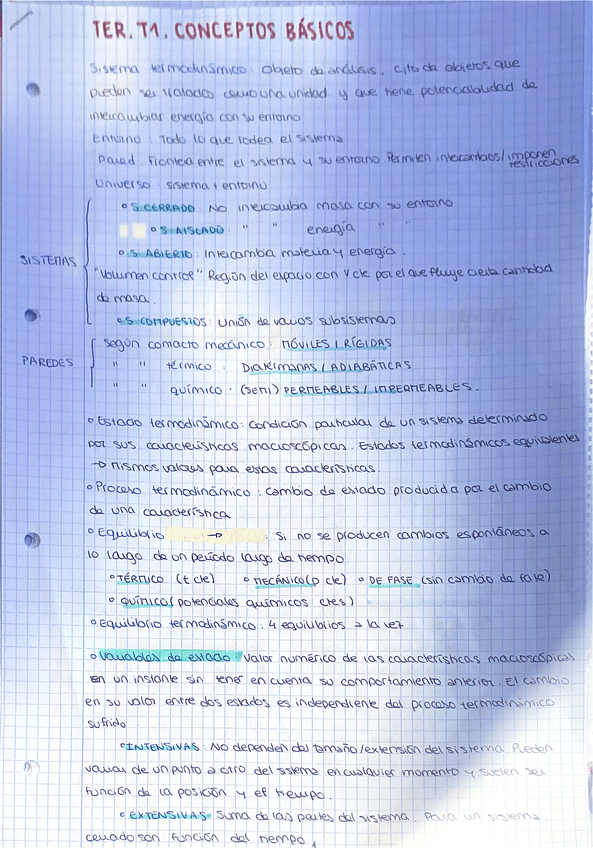 TER. T1. CONCEPTOS BÁSICOS
Sistema termodinámico: Objeto de análisis, cjto de objetos que
pueden ser tratados como una unidad y que tiene potenciabilidad de
intercambiar energía con su entorno
Entorno: Todo lo que rodea el sistema
Pared: Frontera entre el sistema y su entorno. Permiten intercambios/imponen
restricciones
Universo: sistema + entorno
SISTEMAS
° S. CERRADO: NO intercambia masa con su entorno
° S AISLADO: " " energía " "
° S. ABIERTO: Intercambia materia y energía.
"Volumen control" Región del espacio con V cte por el que fluye cierta cantidad
de masa.
° S. COMPUESTOS: Unión de varios subsistemas
PAREDES
Según contacto mecánico: MÓVILES / RÍGIDAS
" " térmico: DIATERMANAS / ADIABÁTICAS
" " químico: (SEMI) PERMEABLES / IMPERMEABLES.
° Estado termodinámico: condición particular de un sistema determinado
por sus características macroscópicas. Estados termodinámicos equivalentes
→ mismos valores para estas características.
° Proceso termodinámico: cambio de estado producida por el cambio
de una característica
° Equilibrio → : Si no se producen cambios espontáneos a
lo largo de un período largo de tiempo
° TÉRMICO (t cte) ° MECÁNICO (p cte) ° DE FASE (sin cambio de fase)
° QUÍMICO (potenciales químicos ctes)
° Equilibrio termodinámico: 4 equilibrios a la vez
° Variables de estado: valor numérico de las características macroscópicas
en un instante sin tener en cuenta su comportamiento anterior. El cambio
en su valor entre dos estados es independiente del proceso termodinámico
sufrido.
° INTENSIVAS: No dependen del tamaño/extensión del sistema. Pueden
variar de un punto a otro del sistema en cualquier momento y suelen ser
función de la posición y el tiempo.
° EXTENSIVAS: Suma de las partes del sistema. Para un sistema
cerrado son función del tiempo